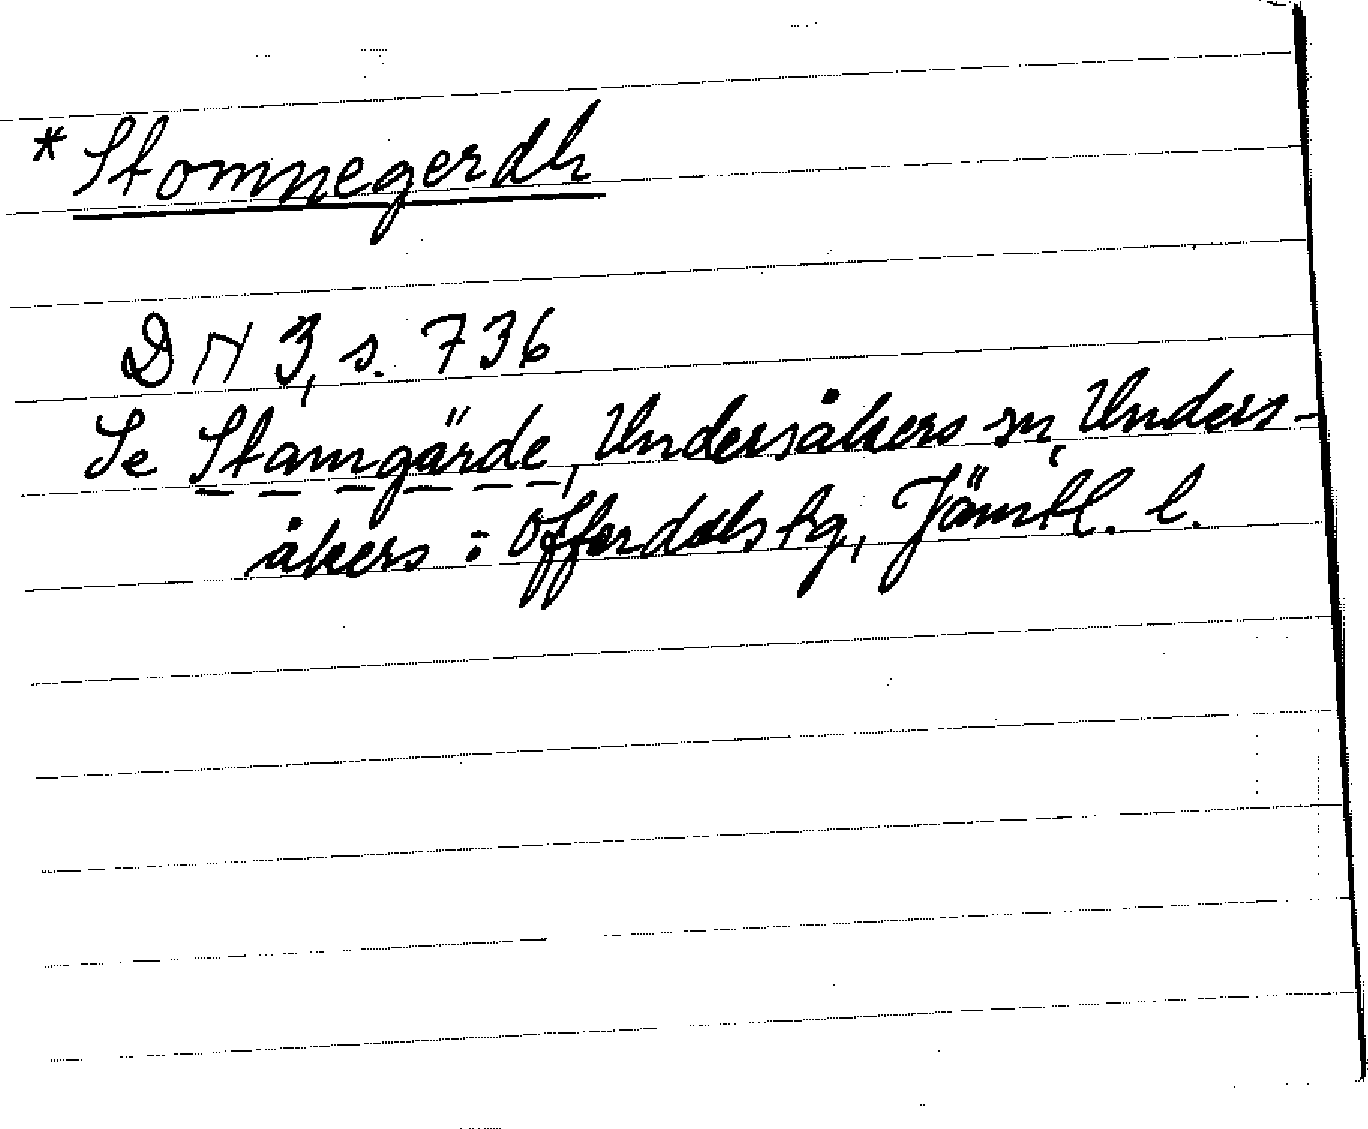 *Stomnegerdh
DN 3, s. 736
Se Stamgärde, Undersåkers sn, Unders-
åkers o. Offerdals tg, Jämtl. l.